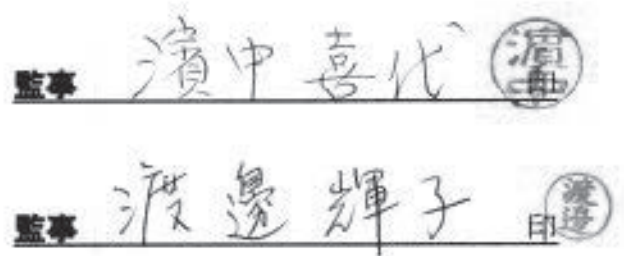 監事 濱中喜代 印 濱中
監事 渡邊輝子 印 渡邊